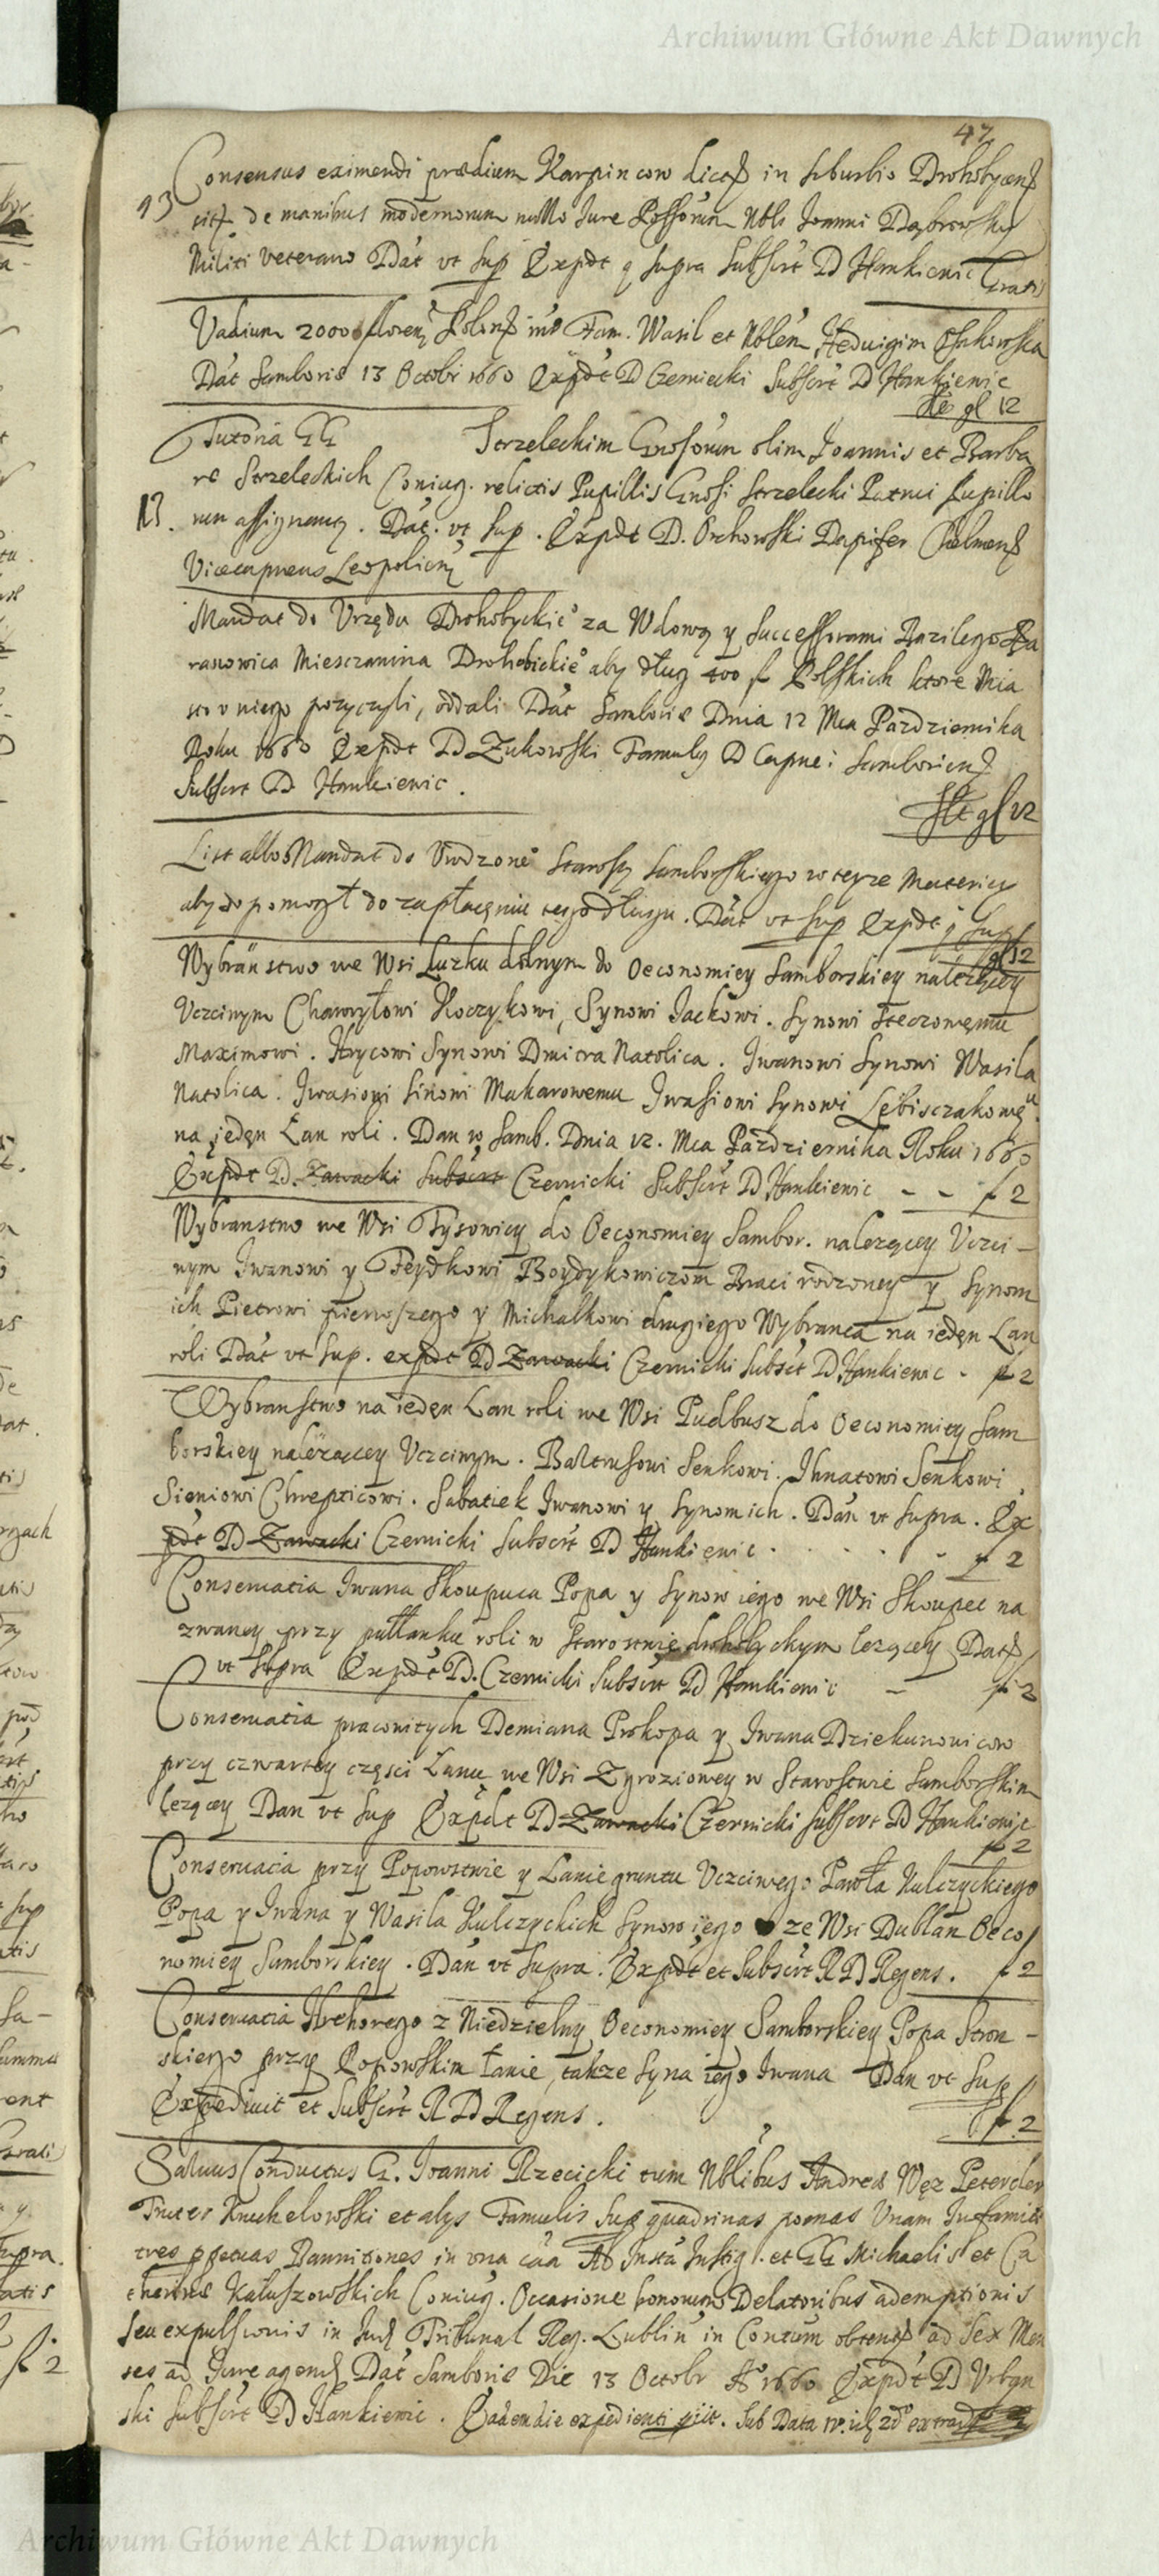 Archiwum Główne Akt Dawnych
47
Consensus eximendi prædium Karpincow dict in suburbio Drohobycens
13
sit de manibus modernorum nullo Jure Possorum Nbli Joanni Dąbrowsky
Militi veterano Dat vt sup Expdt q supra Subscrt D Hankiewic Gratis
Vadium 20000 floren Polon int Fam. Wasil et Nblem Heduigim
Dat Samboriæ 13 Octobr 1660 Expdt D Czerniecki Subscrt D Hankiewic
gl 12
Tutoria GG Strzeleckim Gnosorum olim Joannis et Barba
ræ Strzeleckich Coniug. relictis Pupillis Gnosi Strzelecki Patrui Pupillo
13. rum assignam. Dat. vt sup. Expdt D. Orchowski Dapifer Chelmens
Vicecapneus Leopolien
Mandat do Vrzędu Drohobyckie° za Wdową y successorami Bazilego Ba
ranowica Miesczanina Drohobickie° aby dług 400 f Polskich ktore Mia
sto v niego pozyczyli, oddali Dat Samboriæ Dnia 12 Mca Pazdziernika
Roku 1660 Expdt D Zukowski Famulg D Capnei Samborien
Subscrt D Hankiewic.
gl 12
List albo Mandat do Vrodzone° Starosty Samborskiego w teyze Materiey
aby dopomogł do zapłacęnia tego długu. Dat vt sup Expdt q Sup
gl 12
Wybraństwo we Wsi Łuzku dolnym do Oeconomiey Samborskiey nalezącey
Vczciwym Chawryłowi Koczykowi, Synowi Jackowi. Synowi Steczowęmu
Maximowi. Hrycowi Synowi Dmitra Natolica. Jwanowi Synowi Wasila
Natolica. Jwasiowi sinowi Makarowemu Jwasiowi synowi Lebisczakowęu
na ięden Łan roli. Dan w Samb. Dnia 12. Mca Pazdziernika Roku 1660
Expdt D. Zawacki Subscrt Czernicki Subscrt D Hankiewic - - f 2
Wybranstwo we Wsi Tysowicy do Oeconomiey Sambor. nalezącey Vczci-
wym Jwanowi y Feydkowi Boydykowiczom Braci rodzoney y synom
ich Pietrowi pierwszego y Michalkowi drugiego Wybranca na ieden Lan
roli Dat vt sup. expdt D Zawacki Czernicki subscrt D Hankiewic - f 2
Wybranstwo na ieden Lan roli we Wsi Pudbusz do Oeconomiey Sam
borskiey nalezącey Vczciwym. Baltrusowi Senkowi. Ihnatowi Senkowi.
Sieniowi Chrepticowi. Sabatiek Jwanowi y synom ich. Dan vt supra. Ex
pdt D Zawacki Czernicki subscrt D Hankiewic . . . . . f 2
Conseruatia Jwana Skoupuca Popa y synow iego we Wsi Skoupec na
zwaney przy pułłanku roli w Starostwie drohobyckym lezącey Dat
vt supra Expdt D. Czernicki subscrt D Hankiewic - f 2
Conseruatia pracowitych Demiana Prokopa y Jwana Dziekunowicow
przy czwartey części Łanu we Wsi Zyroziowey w Starostwie Samborskim
lezącey Dan vt sup Expdt D Zawacki Czernicki subscrt D Hankiewic
f 2
Conseruacia przy Popowstwie y Lanie gruntu Vczciwego Pawła Kulczyckiego
Popa y Jwana y Wasila Kulczyckich synow iego ze Wsi Dublan Oeco
nomiey Samborskiey. Dan vt supra. Expdt et subscrt R D Regens. f 2
Conseruatia Hrehorego z Niedzielny Oeconomiey Samborskiey Popa Stron-
skiego przy Popowskim Łanie, takze syna iego Jwana Dan vt sup
Expediuit et subscrt R D Regens.
f 2
Saluus Conductus G. Joanni Rzecicki tum Nblibus Andreæ Węz Peter der
Fruter Kruchelowski et alys Famulis Sup quadrinas poenas Vnam Infamiæ
tres ppetuas Bannitiones in vna caa Ad Insta Instig. et GG Michaelis et Ca
therinæ Kaluszowskich Coniug. Occasione bonorum Delatoribus ademptionis
seu expulsionis in Jud Tribunal Reg. Lublin in Contum obtent ad sex Men
ses ad Jure agend Dat Samboriæ Die 13 Octobr A° 1660 Expdt D Vrbqn
ski subscrt D Hankiewic. Eadem die expedienti
Archiwum Główne Akt Dawnych